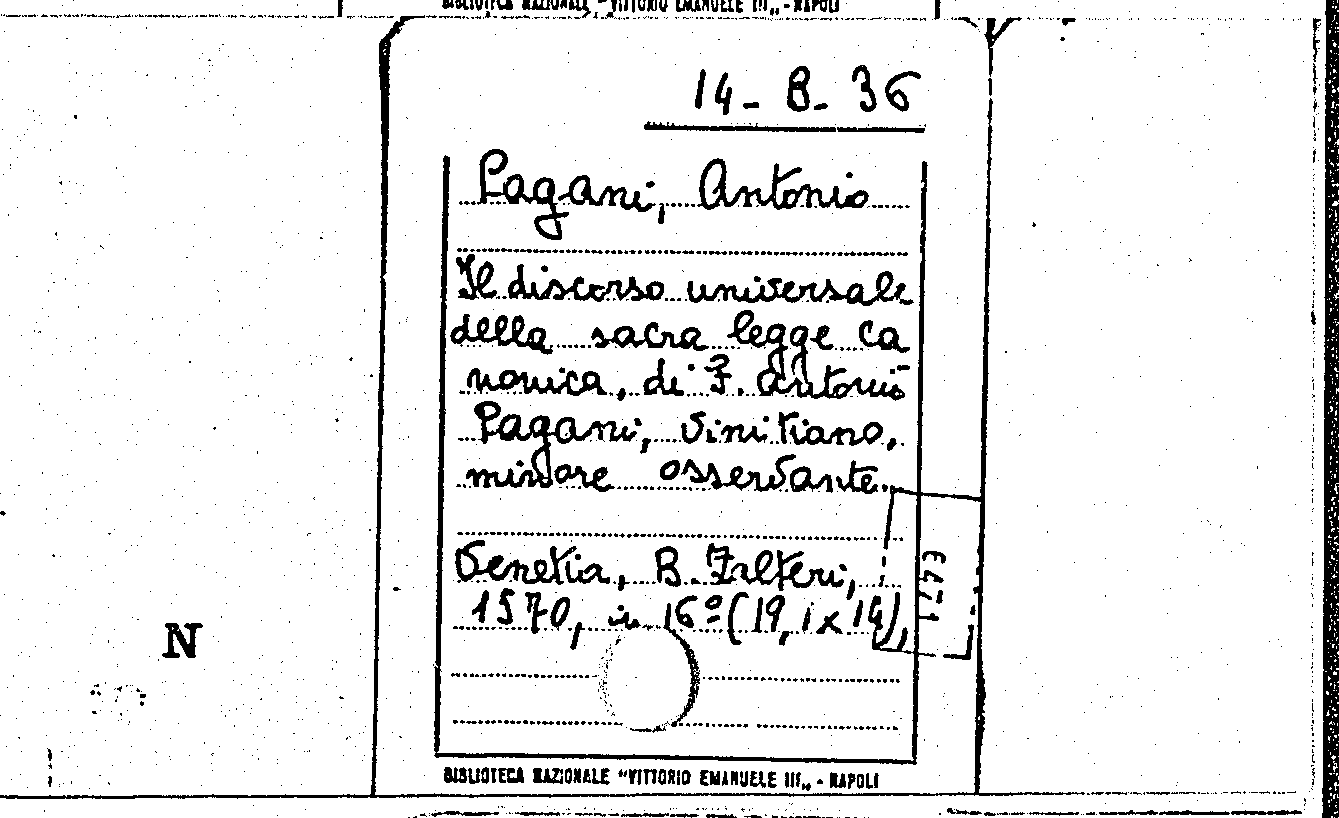 BIBLIOTECA NAZIONALE "VITTORIO EMANUELE III„ - NAPOLI
14 - B - 36
Pagani, Antonio
Il discorso universale
della sacra legge ca
nonica, di F. Antonio
Pagani, Vinitiano,
minore osservante.
Venetia, B. Falteri,
1570, in 16º (19,1 x 14),
E471
N
BIBLIOTECA NAZIONALE "VITTORIO EMANUELE III„ - NAPOLI